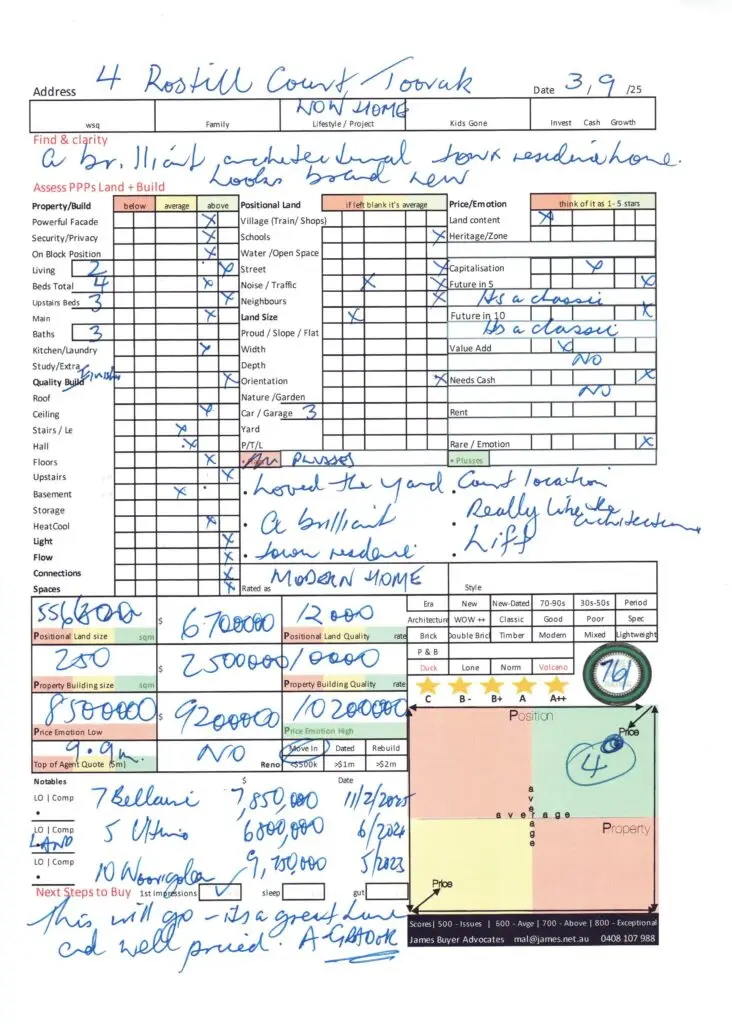 Address 4 Rostill Court, Toorak Date 3/9 /25
WOW HOME
wsq Family Lifestyle / Project Kids Gone Invest Cash Growth
Find & clarity
A brilliant architectural town residence home.
Looks brand new
Assess PPPs Land + Build
Property/Build below average above Positional Land if left blank it's average Price/Emotion think of it as 1- 5 stars
Powerful Facade Village (Train/ Shops) Land content
Security/Privacy Schools Heritage/Zone
On Block Position Water /Open Space
Living 2 Street Capitalisation
Beds Total 4 Noise / Traffic Future in 5
Upstairs Beds 3 Neighbours Its a classic
Main Land Size Future in 10
Baths 3 Proud / Slope / Flat Its a classic
Kitchen/Laundry Width Value Add
Study/Extra Depth NO
Quality Build Finish Orientation Needs Cash
Roof Nature /Garden NO
Ceiling Car / Garage 3 Rent
Stairs / Le Yard
Hall P/T/L Rare / Emotion
Floors PLUSSES + Plusses
Upstairs • Loved the yard • Court location
Basement
Storage • A brilliant • Really like the architecture
HeatCool
Light town residence • Lift
Flow
Connections
Spaces Rated as MODERN HOME Style
$ 6700000 12000
Positional Land size sqm Positional Land Quality rate
250 $ 2500000/0000
Property Building size sqm Property Building Quality rate
8500000 $ 9200000 10200000
Price Emotion Low Price Emotion High
9.9m NO Move In Dated Rebuild
Top of Agent Quote ($m) Reno <$500k >$1m >$2m
Era New New-Dated 70-90s 30s-50s Period
Architecture WOW ++ Classic Good Poor Spec
Brick Double Bric Timber Modern Mixed Lightweight
P & B
Duck Lone Norm Volcano
761
C B - B+ A A++
Position
Price
4
average
average
Property
Price
Notables $ Date
LO | Comp 7 Bellaire 7,850,000 11/2/2025
LO | Comp 5 6800,000 6/2024
LAND
LO | Comp 10 Woorigoleen 9,750,000 5/2023
Next Steps to Buy 1st impressions sleep gut
This will go - its a great
and well priced. A-GRADER
Scores| 500 - Issues | 600 - Avge | 700 - Above | 800 - Exceptional
James Buyer Advocates mal@james.net.au 0408 107 988